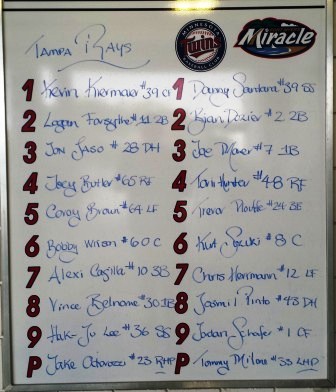 Tampa Rays
MINNESOTA
Twins
BASEBALL CLUB
Miracle
1 Kevin Kiermaier #39 CF
2 Logan Forsythe #11 2B
3 Jon Jaso #28 DH
4 Joey Butler #65 RF
5 Corey Brown #64 LF
6 Bobby Wilson #60 C
7 Alexi Casilla #10 3B
8 Vince Belnome #30 1B
9 Hak-Ju Lee #36 SS
P Jake Odorizzi #23 RHP
1 Danny Santana #39 SS
2 Brian Dozier #2 2B
3 Joe Mauer #7 1B
4 Torii Hunter #48 RF
5 Trevor Plouffe #24 3B
6 Kurt Suzuki #8 C
7 Chris Herrmann #12 LF
8 Josmil Pinto #43 DH
9 Jordan Schafer #1 CF
P Tommy Milone #33 LHP